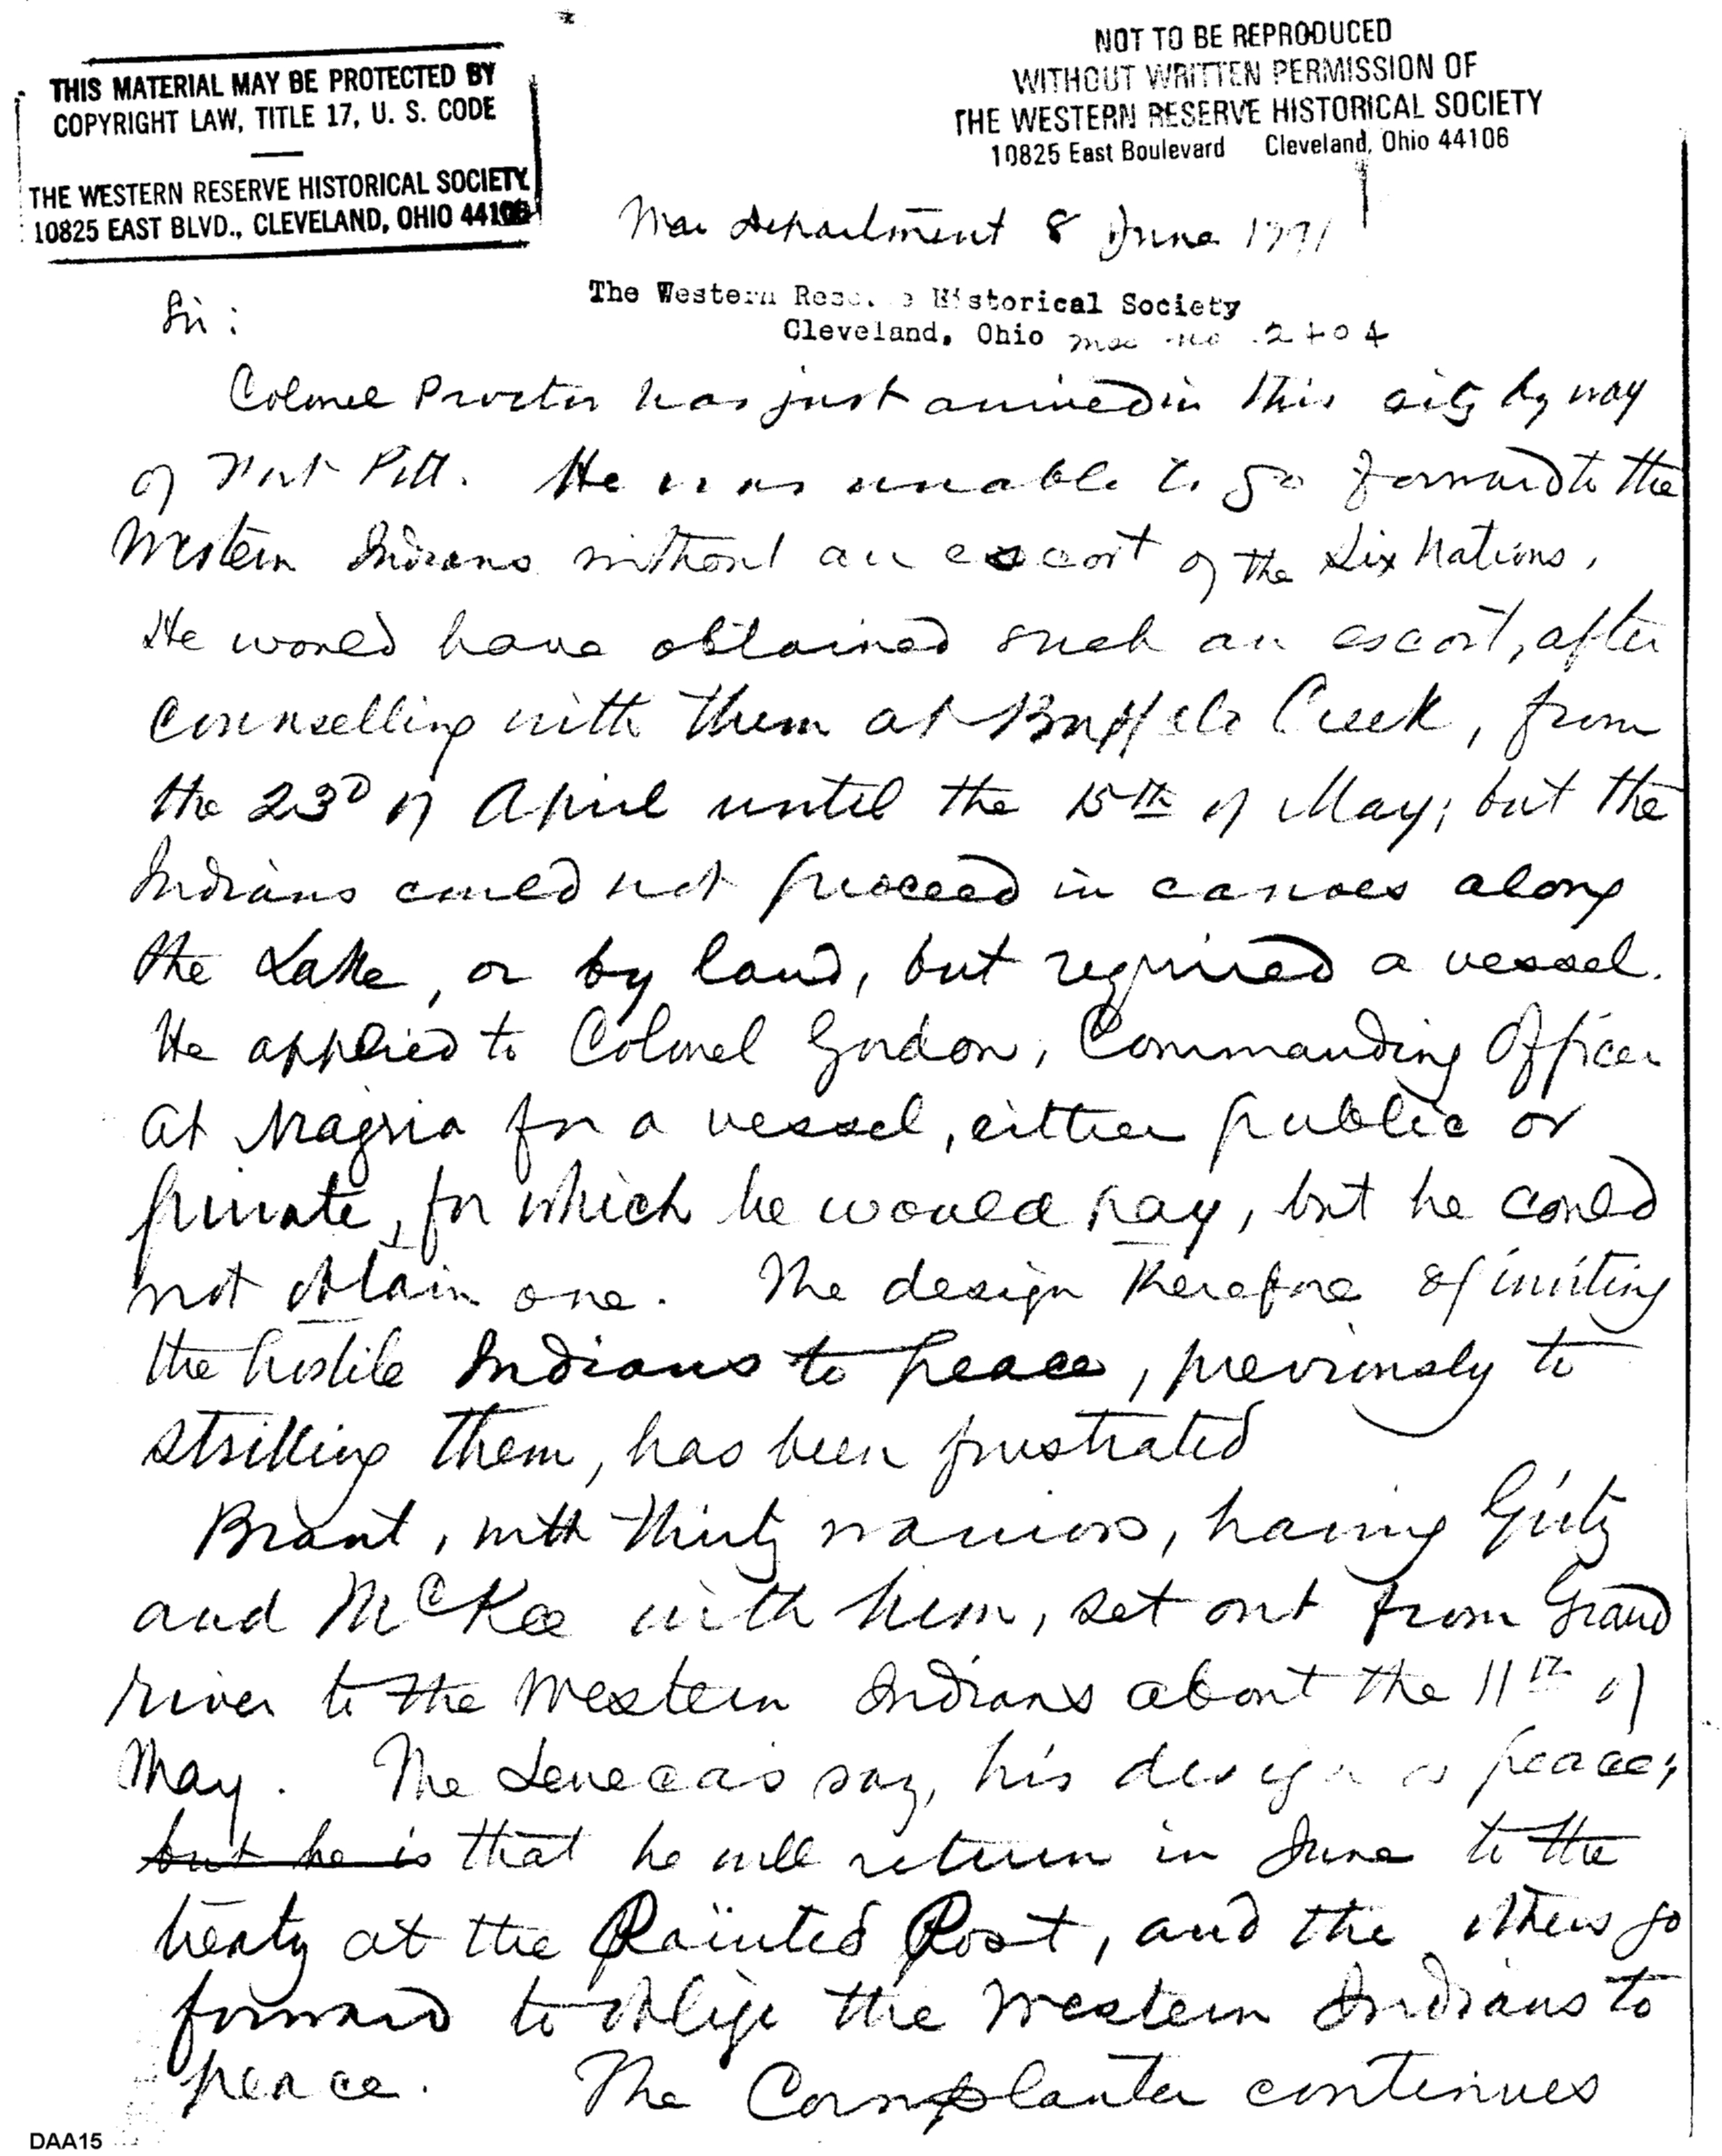 THIS MATERIAL MAY BE PROTECTED BY
COPYRIGHT LAW, TITLE 17, U. S. CODE
THE WESTERN RESERVE HISTORICAL SOCIETY
10825 EAST BLVD., CLEVELAND, OHIO 44106
NOT TO BE REPRODUCED
WITHOUT WRITTEN PERMISSION OF
THE WESTERN RESERVE HISTORICAL SOCIETY
10825 East Boulevard Cleveland, Ohio 44106
War Department 8 June 1791
The Western Reserve Historical Society
Cleveland, Ohio
Sir:
Colonel Proctor has just arrived in this city by way
of Fort Pitt. He was unable to go forward to the
Western Indians without an escort of the Six Nations.
He would have obtained such an escort, after
counselling with them at Buffalo Creek, from
the 23D of April until the 15th of May; but the
Indians could not proceed in canoes along
the Lake, or by land, but required a vessel.
He applied to Colonel Gordon, Commanding Officer
at Niagria for a vessel, either public or
private, for which he would pay, but he could
not obtain one. The design therefore of inviting
the hostile Indians to peace, previously to
striking them, has been frustrated
Brant, with thirty warriors, having Girty
and McKee with him, set out from Grand
river to the Western Indians about the 11th of
May. The Senecas say, his design is peace;
but he is that he will return in June to the
treaty at the Painted Post, and the others go
forward to oblige the Western Indians to
peace. The Cornplanter continues
DAA15